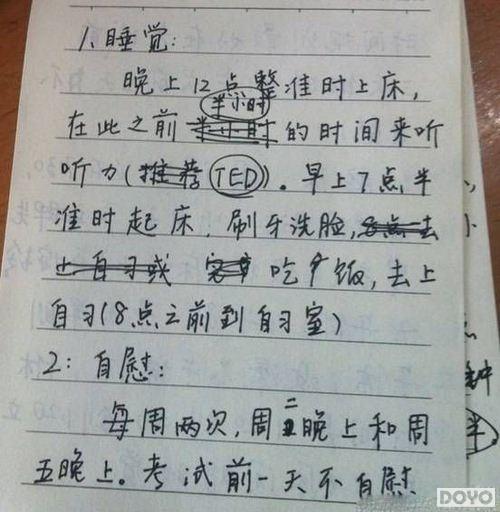 1、睡觉:
晚上12点整准时上床,
半小时
在此之前半小时的时间来听
听力(推荐TED)。早上7点半
准时起床,刷牙洗脸,
上自习或 吃饭,去上
自习(8点之前到自习室)
2: 自慰:
每周两次,周二晚上和周
五晚上。考试前一天不自慰
DOYO